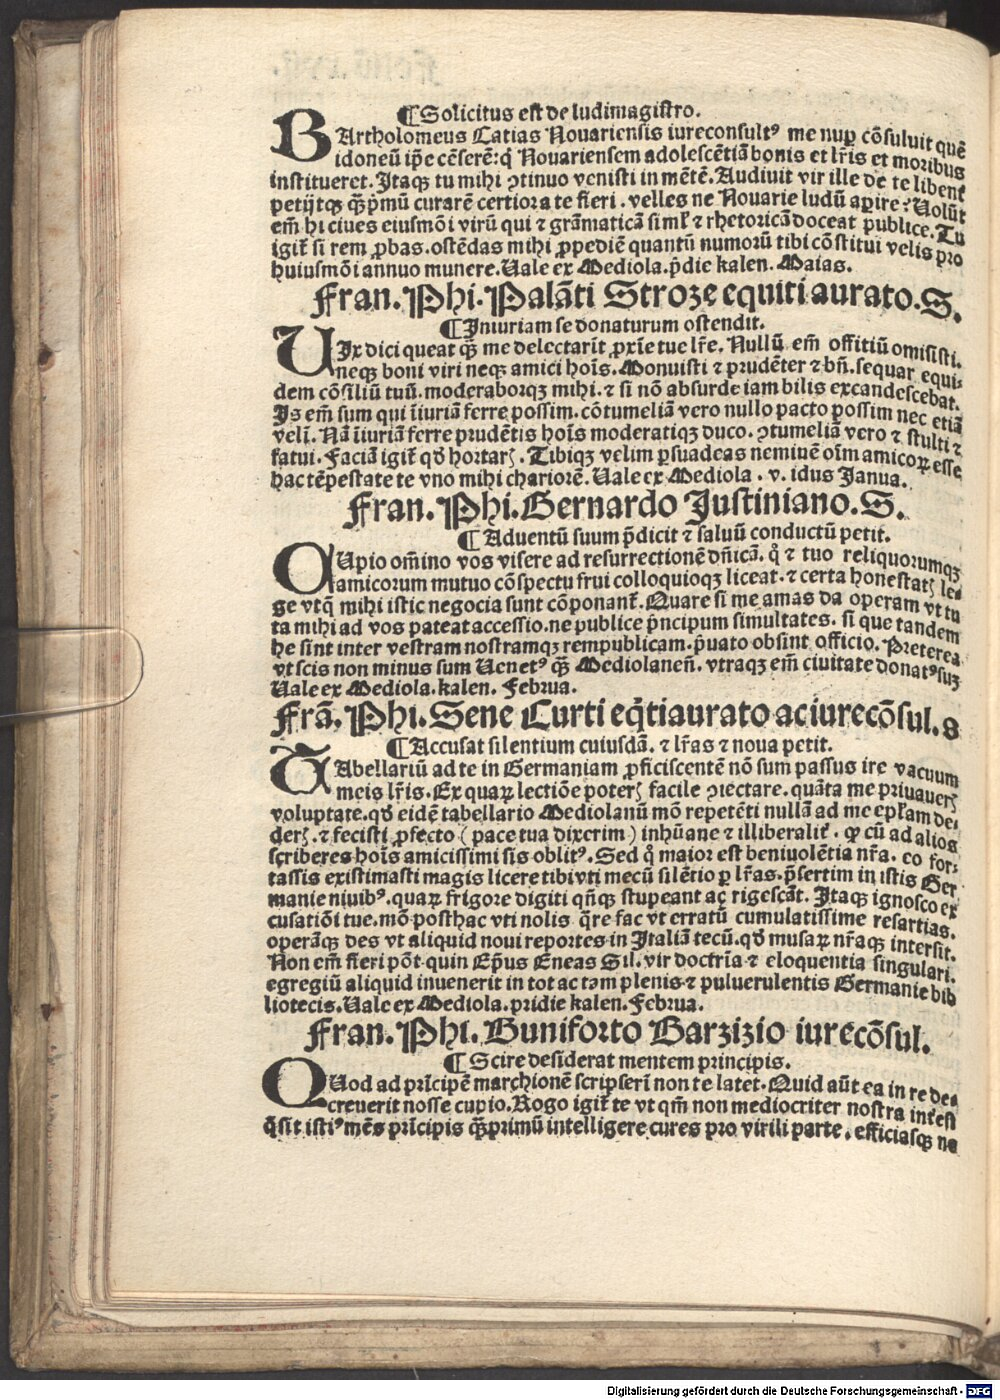 ¶Solicitus est de ludimagistro.
BArtholomeus Catias Nouariensis iureconsultꝰ me nuꝑ cōsuluit quē
idoneū ip̄e cēserē: q̇ Nouariensem adolescētiā bonis et lr̄is et moribus
institueret. Itaqꝫ tu mihi ꝯtinuo venisti in mētē. Audiuit vir ille de te libent̄
petijtqꝫ qꝫ̄pᷓmū curarē certiora te fieri. velles ne Nouarie ludū aꝑire? Uolūt
em̄ hi ciues eiusmōi virū qui ⁊ grāmaticā siml̄ ⁊ rhetoricā doceat publice. Tu
igit̄ si rem ꝓbas. ostēdas mihi ꝓpediē quantū numorū tibi cōstitui velis pro
huiusmōi annuo munere. Uale ex Mediola. p̄die kalen. Maias.
Fran. Phi. Palāti Stroze equiti aurato. S.
¶Iniuriam se donaturum ostendit.
UIx dici queat qꝫ̄ me delectarīt ꝓxīe tue lr̄e. Nullū em̄ offitiū omisisti.
neqꝫ boni viri neqꝫ amici hoīs. Monuisti ⁊ prudēter ⁊ bn̄. sequar equi⸗
dem cōsiliū tuū. moderaborqꝫ mihi. ⁊ si nō absurde iam bilis excandescebat.
Is em̄ sum qui īiuriā ferre possim. cōtumeliā vero nullo pacto possim nec etiā
velī. Nā īiuriā ferre prudētis hoīs moderatiqꝫ duco. ꝯtumeliā vero ⁊ stulti ⁊
fatui. Faciā igit̄ qd̄ hortarꝭ. Tibiqꝫ velim ꝑsuadeas neminē oīm amicoꝝ esse
hac tēpestate te vno mihi chariorē. Uale ex Mediola. v. idus Janua.
Fran. Phi. Bernardo Justiniano. S.
¶Aduentū suum p̄dicit ⁊ saluū conductū petit.
CUpio om̄ino vos visere ad resurrectionē dn̄icā. q̇ ⁊ tuo reliquorumqꝫ
amicorum mutuo cōspectu frui colloquioqꝫ liceat. ⁊ certa honestatꝭ le⸗
ge vtq̄ mihi istic negocia sunt cōponant̄. Quare si me amas da operam vt tu
ta mihi ad vos pateat accessio. ne publice pᷓncipum simultates. si que tandem
he sint inter vestram nostramqꝫ rempublicam. pᷓuato obsint officio. Preterea
vt scis non minus sum Uenetꝰ qꝫ̄ Mediolanen̄. vtraqꝫ em̄ ciuitate donatꝰ suꝫ
Uale ex Mediola. kalen. Februa.
Frā. Phi. Sene Curti eq̇ti aurato ac iurecōsul. S
¶Accusat silentium cuiusdā. ⁊ lr̄as ⁊ noua petit.
TAbellariū ad te in Germaniam ꝓficiscentē nō sum passus ire vacuum
meis lr̄is. Ex quaꝝ lectiōe poterꝭ facile ꝯiectare. quāta me priuauerꝭ
voluptate. qd̄ eidē tabellario Mediolanū mō repetēti nullā ad me epl̄am de⸗
derꝭ. ⁊ fecisti ꝓfecto (pace tua dixerim) inhūane ⁊ illiberalit̄. qꝫ cū ad alios
scriberes hoīs amicissimi sis oblitꝰ. Sed q̇ maior est beniuolētia nr̄a. eo for⸗
tassis existimasti magis licere tibi vti mecū silētio ꝑ lr̄as. p̄sertim in istis Ger
manie niuibꝰ. quaꝝ frigore digiti qn̄qꝫ stupeant ac rigescāt. Itaqꝫ ignosco ex
cusatiōi tue. mō posthac vti nolis. qre fac vt erratū cumulatissime resartias.
operāqꝫ des vt aliquid noui reportes in Italiā tecū. qd̄ musaꝝ nr̄aqꝫ intersit.
Non em̄ fieri pōt quin Ep̄us Eneas Sil. vir doctrīa ⁊ eloquentia singulari.
egregiū aliquid inuenerit in tot ac tam plenis ⁊ puluerulentis Germanie bib
liotecis. Uale ex Mediola. pridie kalen. Februa.
Fran. Phi. Guniforto Barzizio iurecōsul.
¶Scire desiderat mentem principis.
QUod ad prīcipē marchionē scripserī non te latet. Quid aūt ea in re de⸗
creuerit nosse cupio. Rogo igit̄ te vt qm̄ non mediocriter nostra int̄est
q̇ sit istiꝰ mēs prīcipis qꝫ̄primū intelligere cures pro virili parte. efficiasqꝫ ne
Digitalisierung gefördert durch die Deutsche Forschungsgemeinschaft - DFG